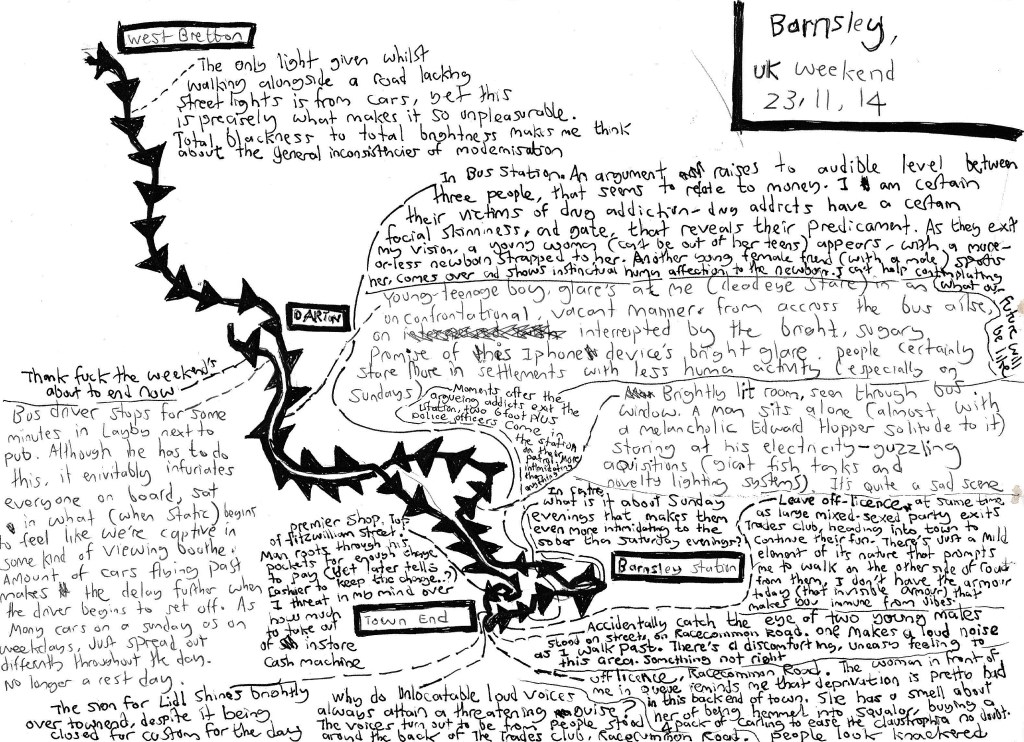 West Bretton
Barnsley,
UK weekend
23, 11, 14
The only light given whilst
walking alongside a road lacking
street lights is from cars, yet this
is precisely what makes it so unpleasurable.
Total blackness to total brightness makes me think
about the general inconsistencies of modernisation
In Bus Station. An argument raises to audible level between
three people, that seems to relate to money. I am certain
their victims of drug addiction – drug addicts have a certain
facial skinniness, and gate, that reveals their predicament. As they exit
my vision, a young woman (can't be out of her teens) appears, with a more-
or-less newborn strapped to her. Another young female friend (with a mole) spots
her, comes over and shows instinctual human affection to the newborn. I can't help contemplating
what our
future will
be like
DARTON
Young-teenage boy, glare's at me (dead eye stare) in an
on confrontational, vacant manner from accross the bus ailse,
on interrupted by the bright, sugary
promise of this Iphone device's bright glare. people certainly
stare more in settlements with less human activity (especially on
Sundays)
Thank fuck the weekend's
about to end now
Bus driver stops for some
minutes in Layby next to
pub. Although he has to do
this, it enivitably infuriates
everyone on board, sat
in what (when static) begins
to feel like we're captive in
some kind of viewing boothe.
Amount of cars flying past
makes the delay further when
the driver begins to set off. As
many cars on a sunday as on
weekdays, Just spread out
differntly throughout the day.
No longer a rest day.
Moments after the
argueing addicts exit the
station, two 6 foot plus
police officers come in
the station
on their
patrol. More
intimidating
than
anything
Brightly lit room, seen through bus
window. A man sits alone (almost with
a melancholic Edward Hopper solitude to it)
staring at his electricity-guzzling
aquisitions (giant fish tanks and
novelty lighting systems) It's quite a sad scene
In centre,
what is it about Sunday
evenings that makes them
even more intimidating to the
sober than Saturday evenings?
Leave off-licence, at same time
as large mixed-sexed party exits
Trades club, heading into town to
continue their fun. There's just a mild
element of its nature that prompts
me to walk on the other side of road
from them, I don't have the armour
today (that invisible armour) that
makes you immune from vibes.
Barnsley Station
premier Shop. Top
of fitzwilliam Street.
Man roots through his
pockets for enough change
to pay (yet later tells
cashier to keep the change..?)
I threat in my mind over
how much
to take out
of instore
cash machine
Town End
Accidentally catch the eye of two young males
stood on streets on Racecommon Road. One makes a loud noise
as I walk past. There's a discomforting, uneasy feeling to
this area. Something not right
off licence, Racecommon Road. The woman in front of
me in queue reminds me that deprivation is pretto bad
in this backend of town. She has a smell about
her of being hemmed into squalor, buying a
4 pack of Carling to ease the claustrophia no doubt.
people look knackered
The sign for Lidl shines brightly
over townend, despite it being
closed for custom for the day
Why do unlocatable loud voices
always attain a threatening guise?
The voices turn out to be from people stood
around the back of The Trades Club, Racecommon Road.